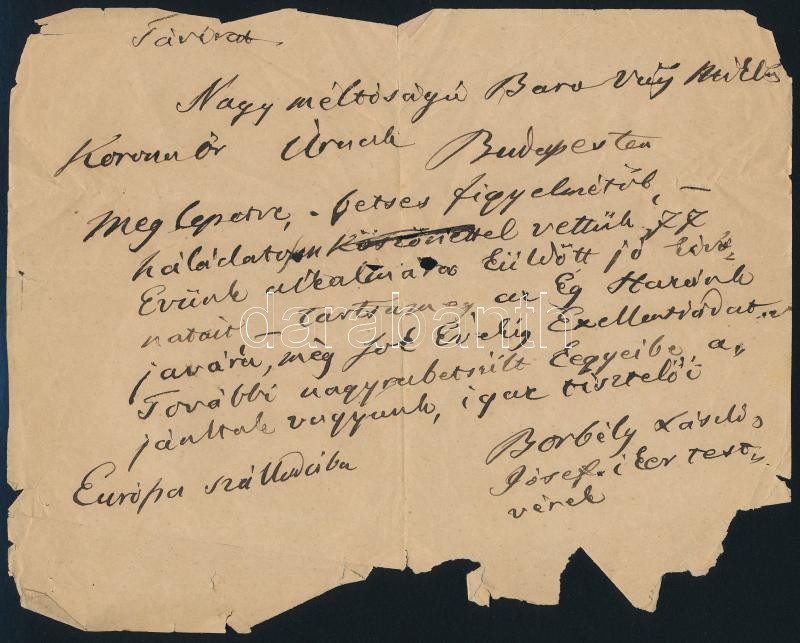 Távirat
Nagy méltóságú Baro Vay Miklós
Koronaőr Úrnak Budapesten
Meglepetve, - betses figyelmétöl, -
háládatosan köszönettel vettük 77
Evünk alkalmára küldött jó kivá„
natait - Tartsa meg az Ég Hazánk
javára, még sok Evekig Exellentiádat
További nagyrabetsült kegyeibe a„
jánltak vagyunk, igaz tisztelői
Borbély László,
Jósef. iker test„
vérek
Európa szállodába
darabanth